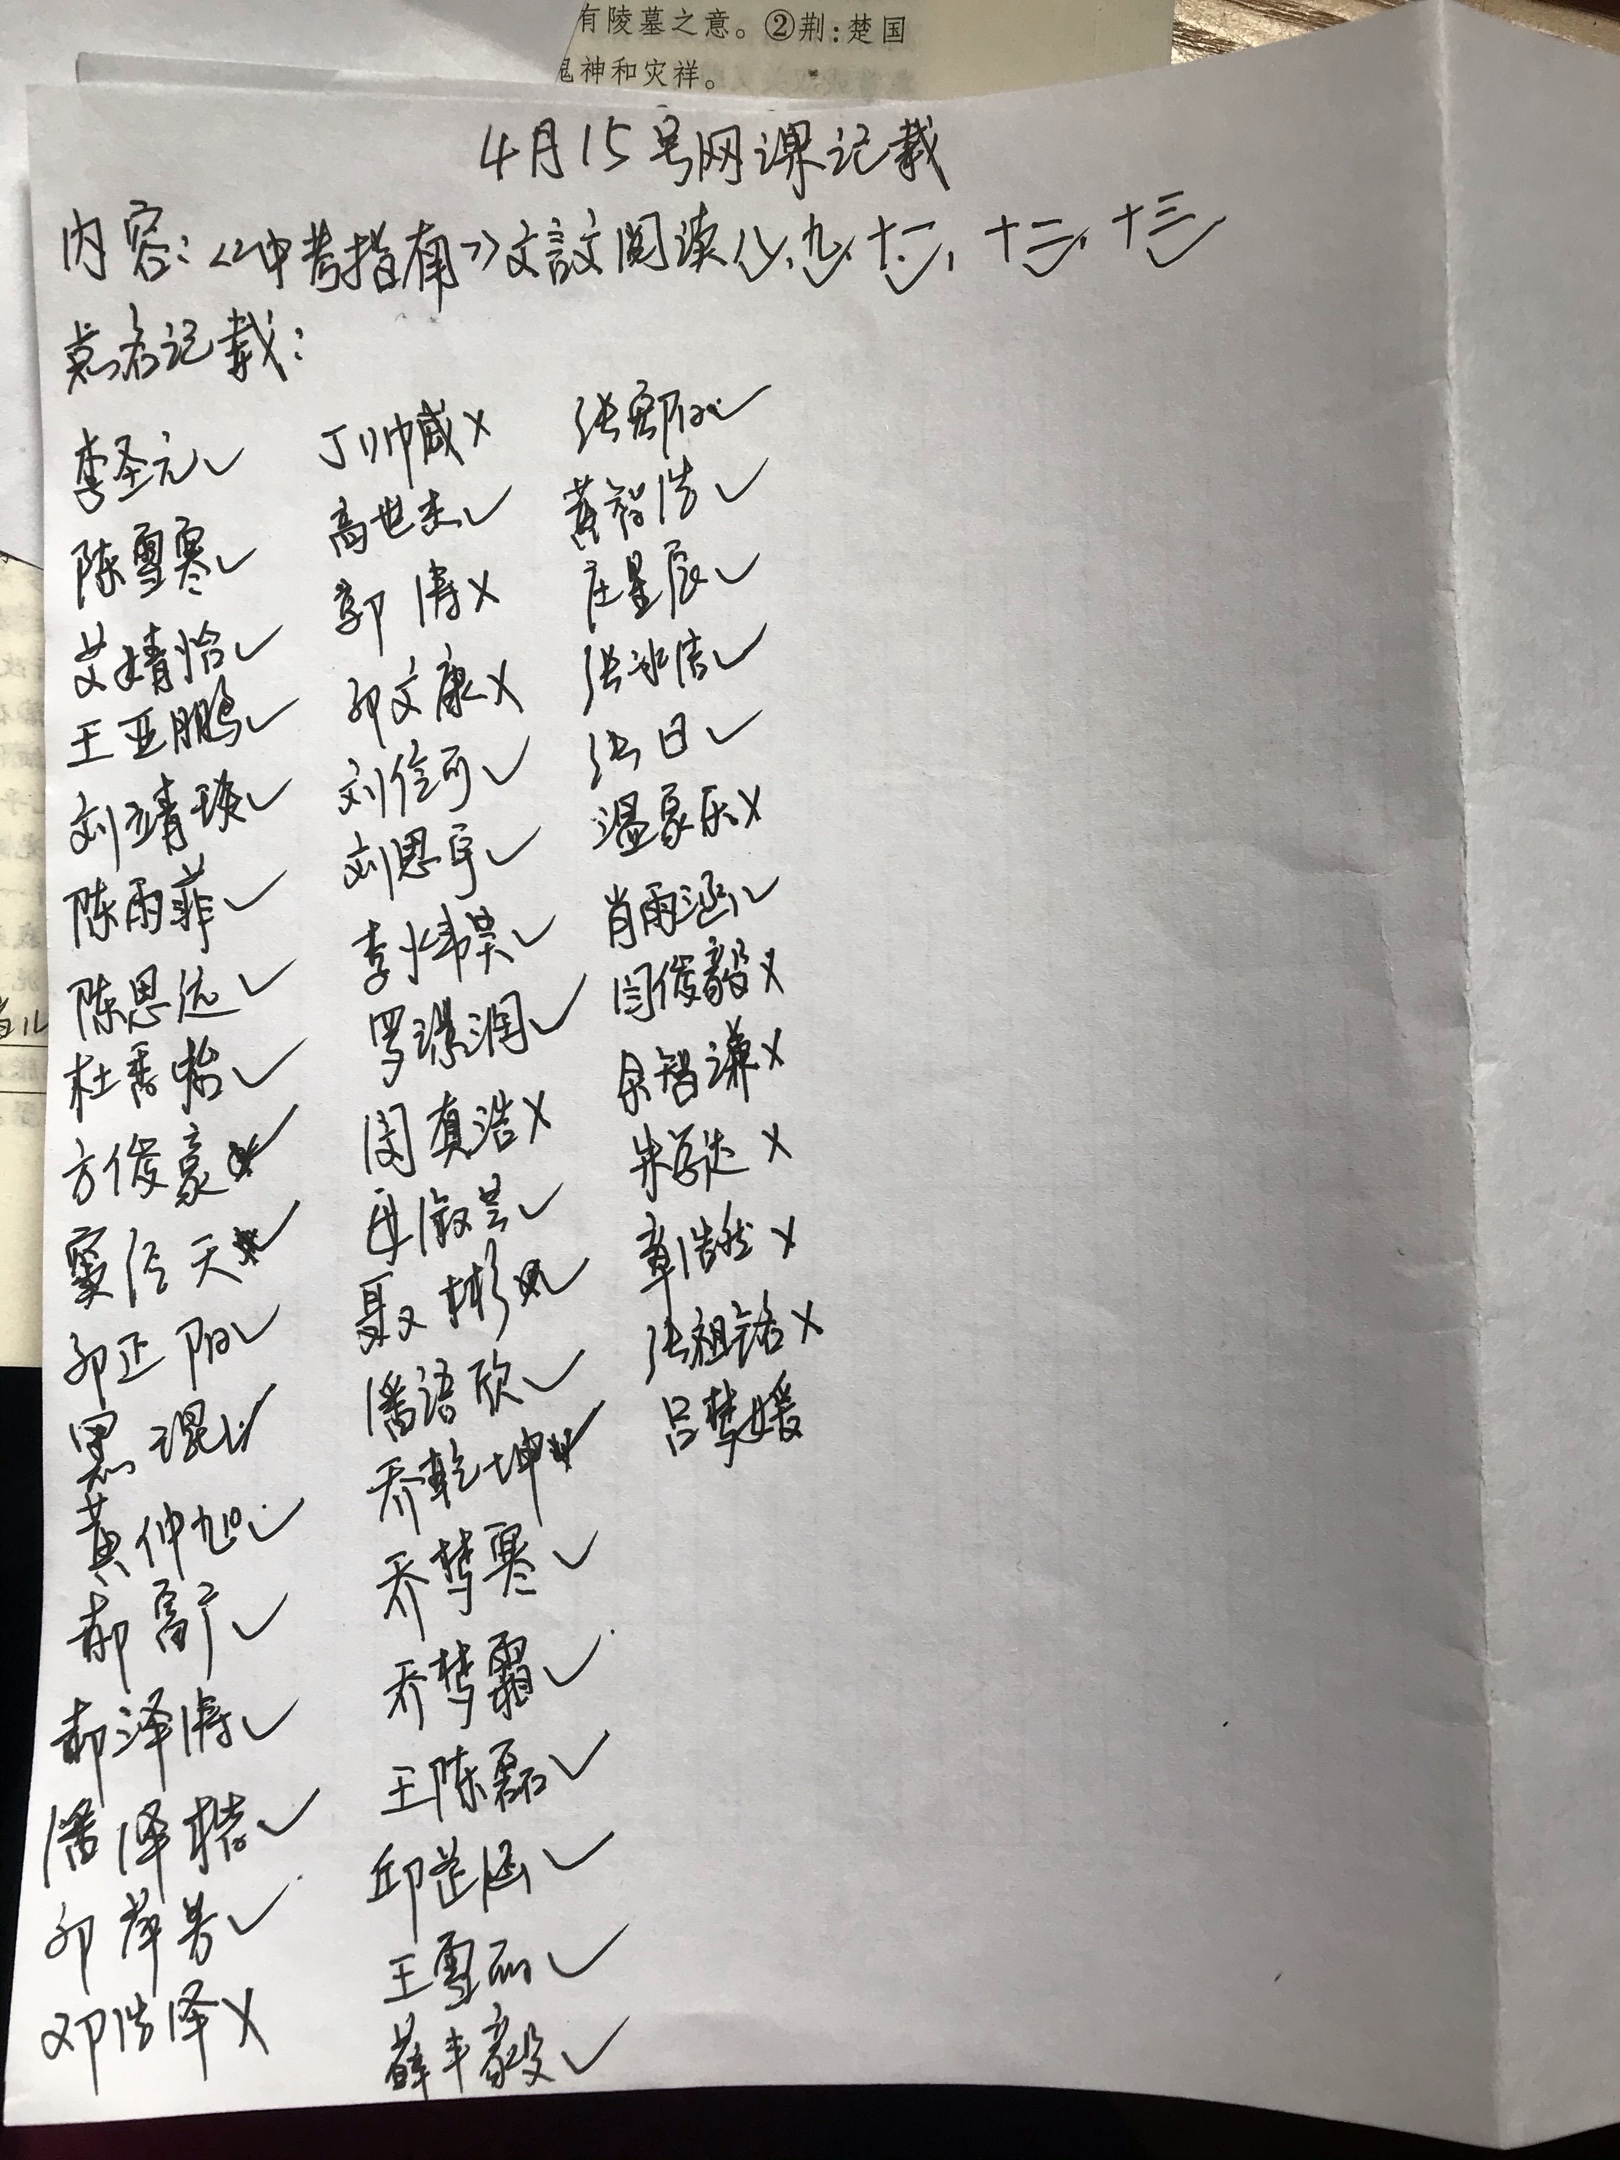 有陵墓之意。②荆:楚国
鬼神和灾祥。
4月15号网课记载
内容:《中考指南》文言文阅读八、九、十一、十二、十三
点名记载:
李圣元✓
陈雪寒✓
艾婧怡✓
王亚鹏✓
刘靖瑛✓
陈雨菲✓
陈思远✓
杜香怡✓
方俊豪✓
窦信天✓
邓正阳✓
黑琨✓
黄仲旭✓
郝富广✓
郝泽博✓
潘泽楷✓
邓萍芳✓
邓浩泽X
丁帅威X
高世杰✓
郭博X
邓文康X
刘信可✓
刘思宇✓
李炜昊✓
罗璟润✓
闵真浩X
冉微芸✓
聂彬✓
潘语欣✓
乔乾坤✓
乔梦寒✓
乔梦霜✓
王陈磊✓
邱芷涵✓
王雪丽✓
薛丰毅✓
张郡阳✓
黄智浩✓
庄星辰✓
张冰洁✓
张日✓
温家乐X
肖雨涵✓
闫俊毅X
余智谦X
朱学达X
章浩然X
张祖铭X
吕梦媛